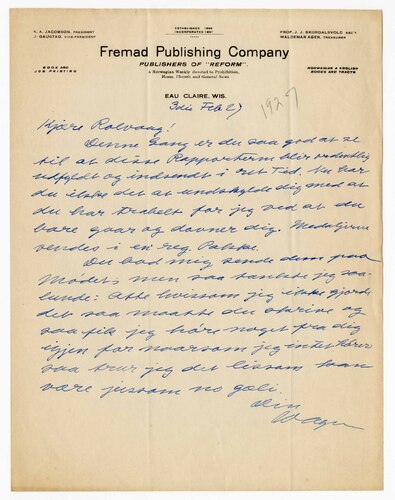 A. A. JACOBSON, PRESIDENT
J. GAUSTAD, VICE-PRESIDENT
ESTABLISHED 1888
INCORPORATED 1891
PROF. J. J. SKORDALSVOLD, SEC'Y
WALDEMAR AGER, TREASURER
Fremad Publishing Company
PUBLISHERS OF "REFORM".
BOOK AND
JOB PRINTING
A Norwegian Weekly devoted to Prohibition,
Home, Church and General News
NORWEGIAN & ENGLISH
BOOKS AND TRACTS
EAU CLAIRE, WIS.
3die Feb 27
1927
Kjære Rolvaag!
Denne Gang er du saa god at se
til at disse Rapporterne blir ordentlig
udfyldt og indsendt i ret Tid. Nu har
du ikke det at undskylde dig med at
du har travelt for jeg ved at du
bare gaar og dovner dig. Medaljerne
sendes i en reg. Pakke.
Du bad mig sende dem paa
Mødet, men saa tænkte jeg saa-
lunde: At hvissom jeg ikke gjorde
det saa maatte du skrive og
saa fik jeg høre noget fra dig
igjen for naarsom jeg intet hører
saa trur jeg det lissom kan
være jussom no gæli.
Din
W Ager